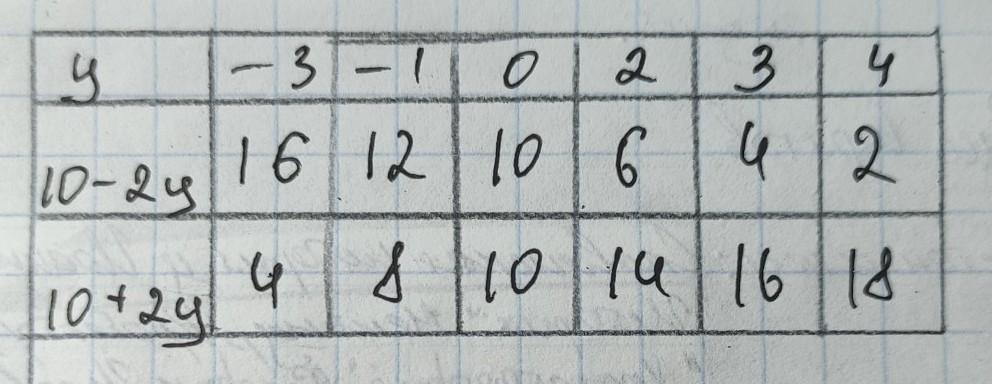 y -3 -1 0 2 3 4
10-2y 16 12 10 6 4 2
10+2y 4 8 10 14 16 18